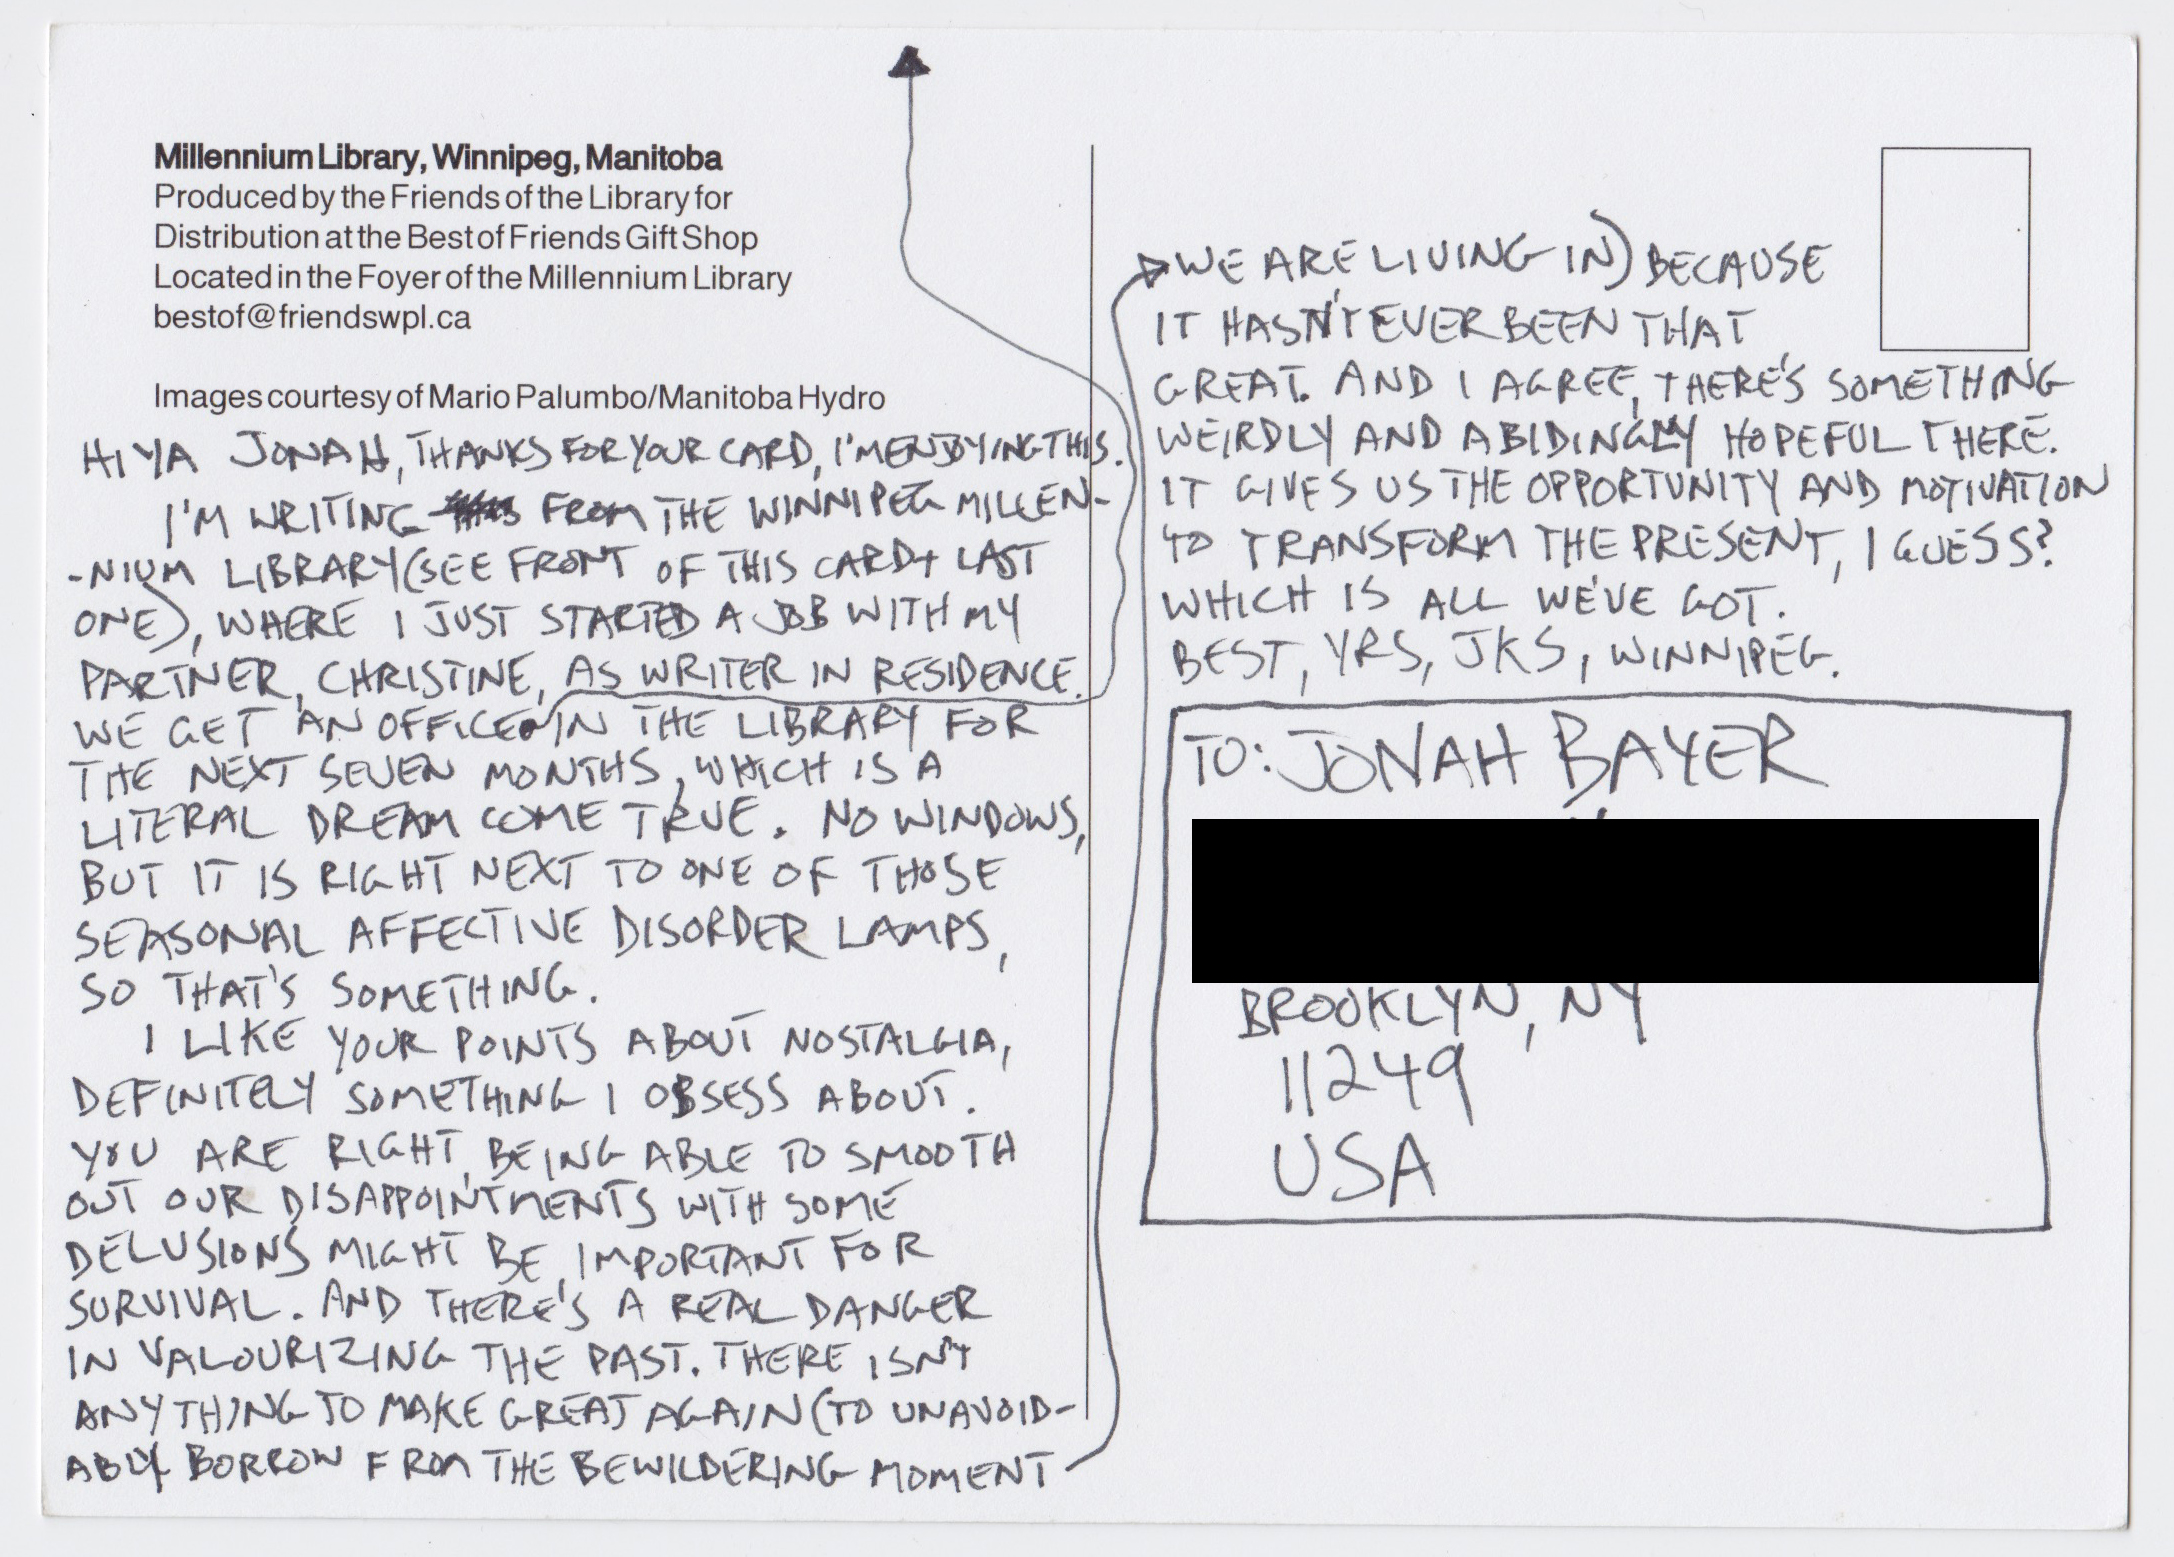 Millennium Library, Winnipeg, Manitoba
Produced by the Friends of the Library for
Distribution at the Best of Friends Gift Shop
Located in the Foyer of the Millennium Library
bestof@friendswpl.ca
Images courtesy of Mario Palumbo/Manitoba Hydro
HIYA JONAH, THANKS FOR YOUR CARD, I'M ENJOYING THIS.
I'M WRITING FROM THE WINNIPEG MILLEN-
-NIUM LIBRARY (SEE FRONT OF THIS CARD + LAST
ONE), WHERE I JUST STARTED A JOB WITH MY
PARTNER, CHRISTINE, AS WRITER IN RESIDENCE.
WE GET AN OFFICE IN THE LIBRARY FOR
THE NEXT SEVEN MONTHS, WHICH IS A
LITERAL DREAM COME TRUE. NO WINDOWS,
BUT IT IS RIGHT NEXT TO ONE OF THOSE
SEASONAL AFFECTIVE DISORDER LAMPS,
SO THAT'S SOMETHING.
I LIKE YOUR POINTS ABOUT NOSTALGIA,
DEFINITELY SOMETHING I OBSESS ABOUT.
YOU ARE RIGHT, BEING ABLE TO SMOOTH
OUT OUR DISAPPOINTMENTS WITH SOME
DELUSIONS MIGHT BE IMPORTANT FOR
SURVIVAL. AND THERE'S A REAL DANGER
IN VALOURIZING THE PAST. THERE ISN'T
ANYTHING TO MAKE GREAT AGAIN (TO UNAVOID-
ABLY BORROW FROM THE BEWILDERING MOMENT
WE ARE LIVING IN) BECAUSE
IT HASN'T EVER BEEN THAT
GREAT. AND I AGREE, THERE'S SOMETHING
WEIRDLY AND ABIDINGLY HOPEFUL THERE.
IT GIVES US THE OPPORTUNITY AND MOTIVATION
TO TRANSFORM THE PRESENT, I GUESS?
WHICH IS ALL WE'VE GOT.
BEST, YRS, JKS, WINNIPEG.
TO: JONAH BAYER
BROOKLYN, NY
11249
USA